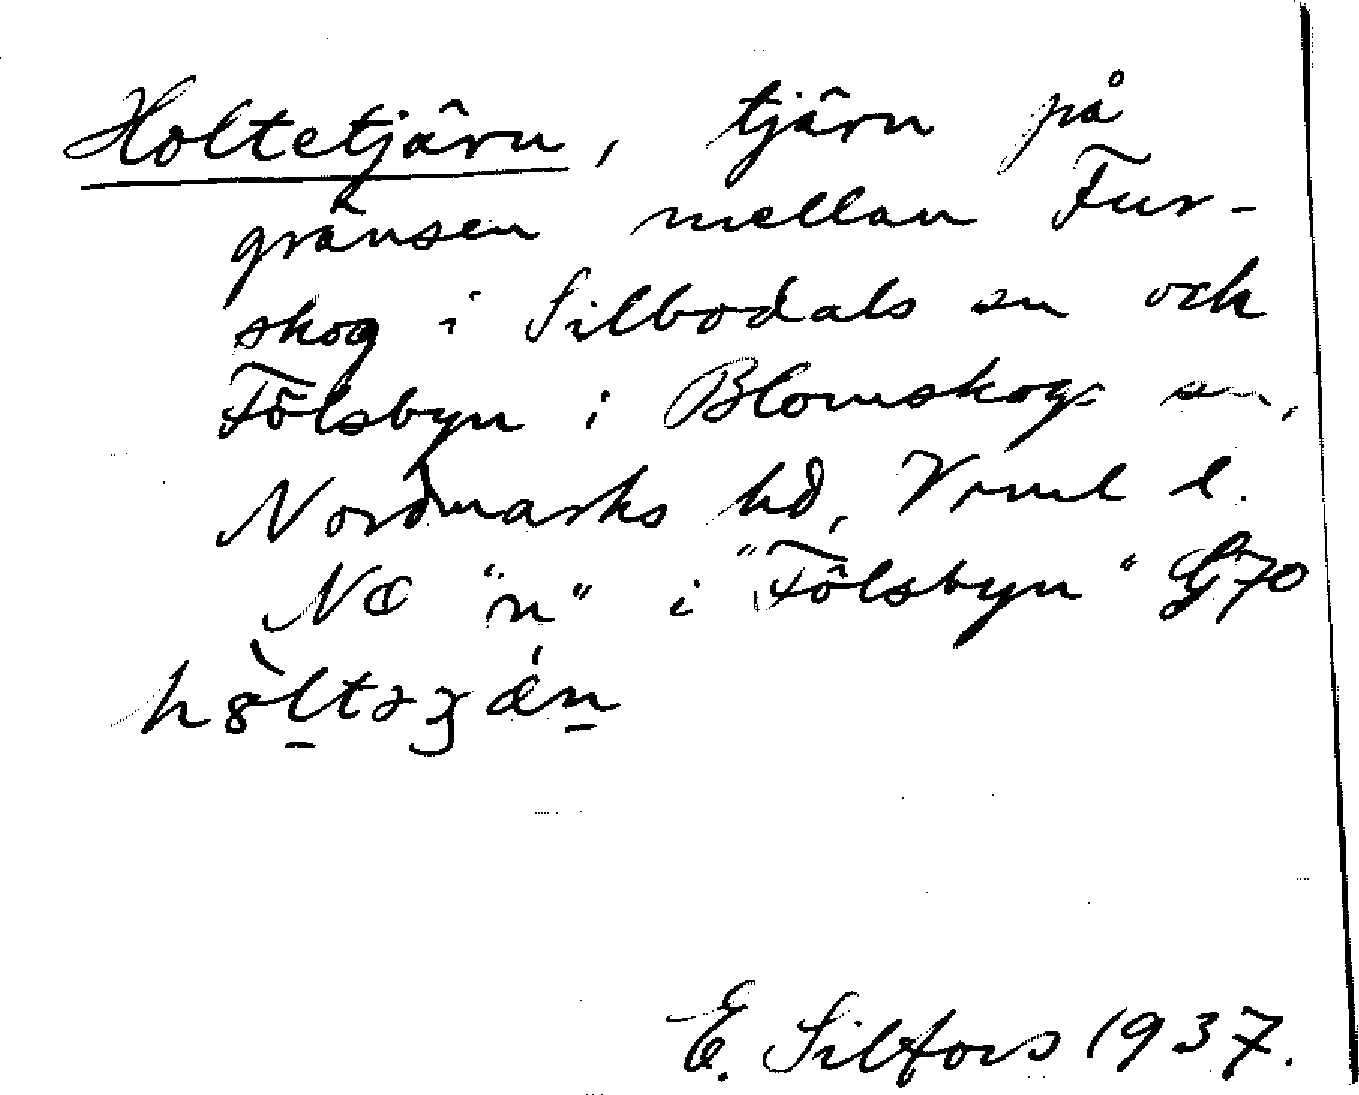 Holtetjärn, tjärn på
gränsen mellan Fur-
skog i Silbodals sn och
Fölsbyn i Blomskogs sn,
Nordmarks hd, Vrml l.
NO "n" i "Fölsbyn" G70
E. Silfors 1937.